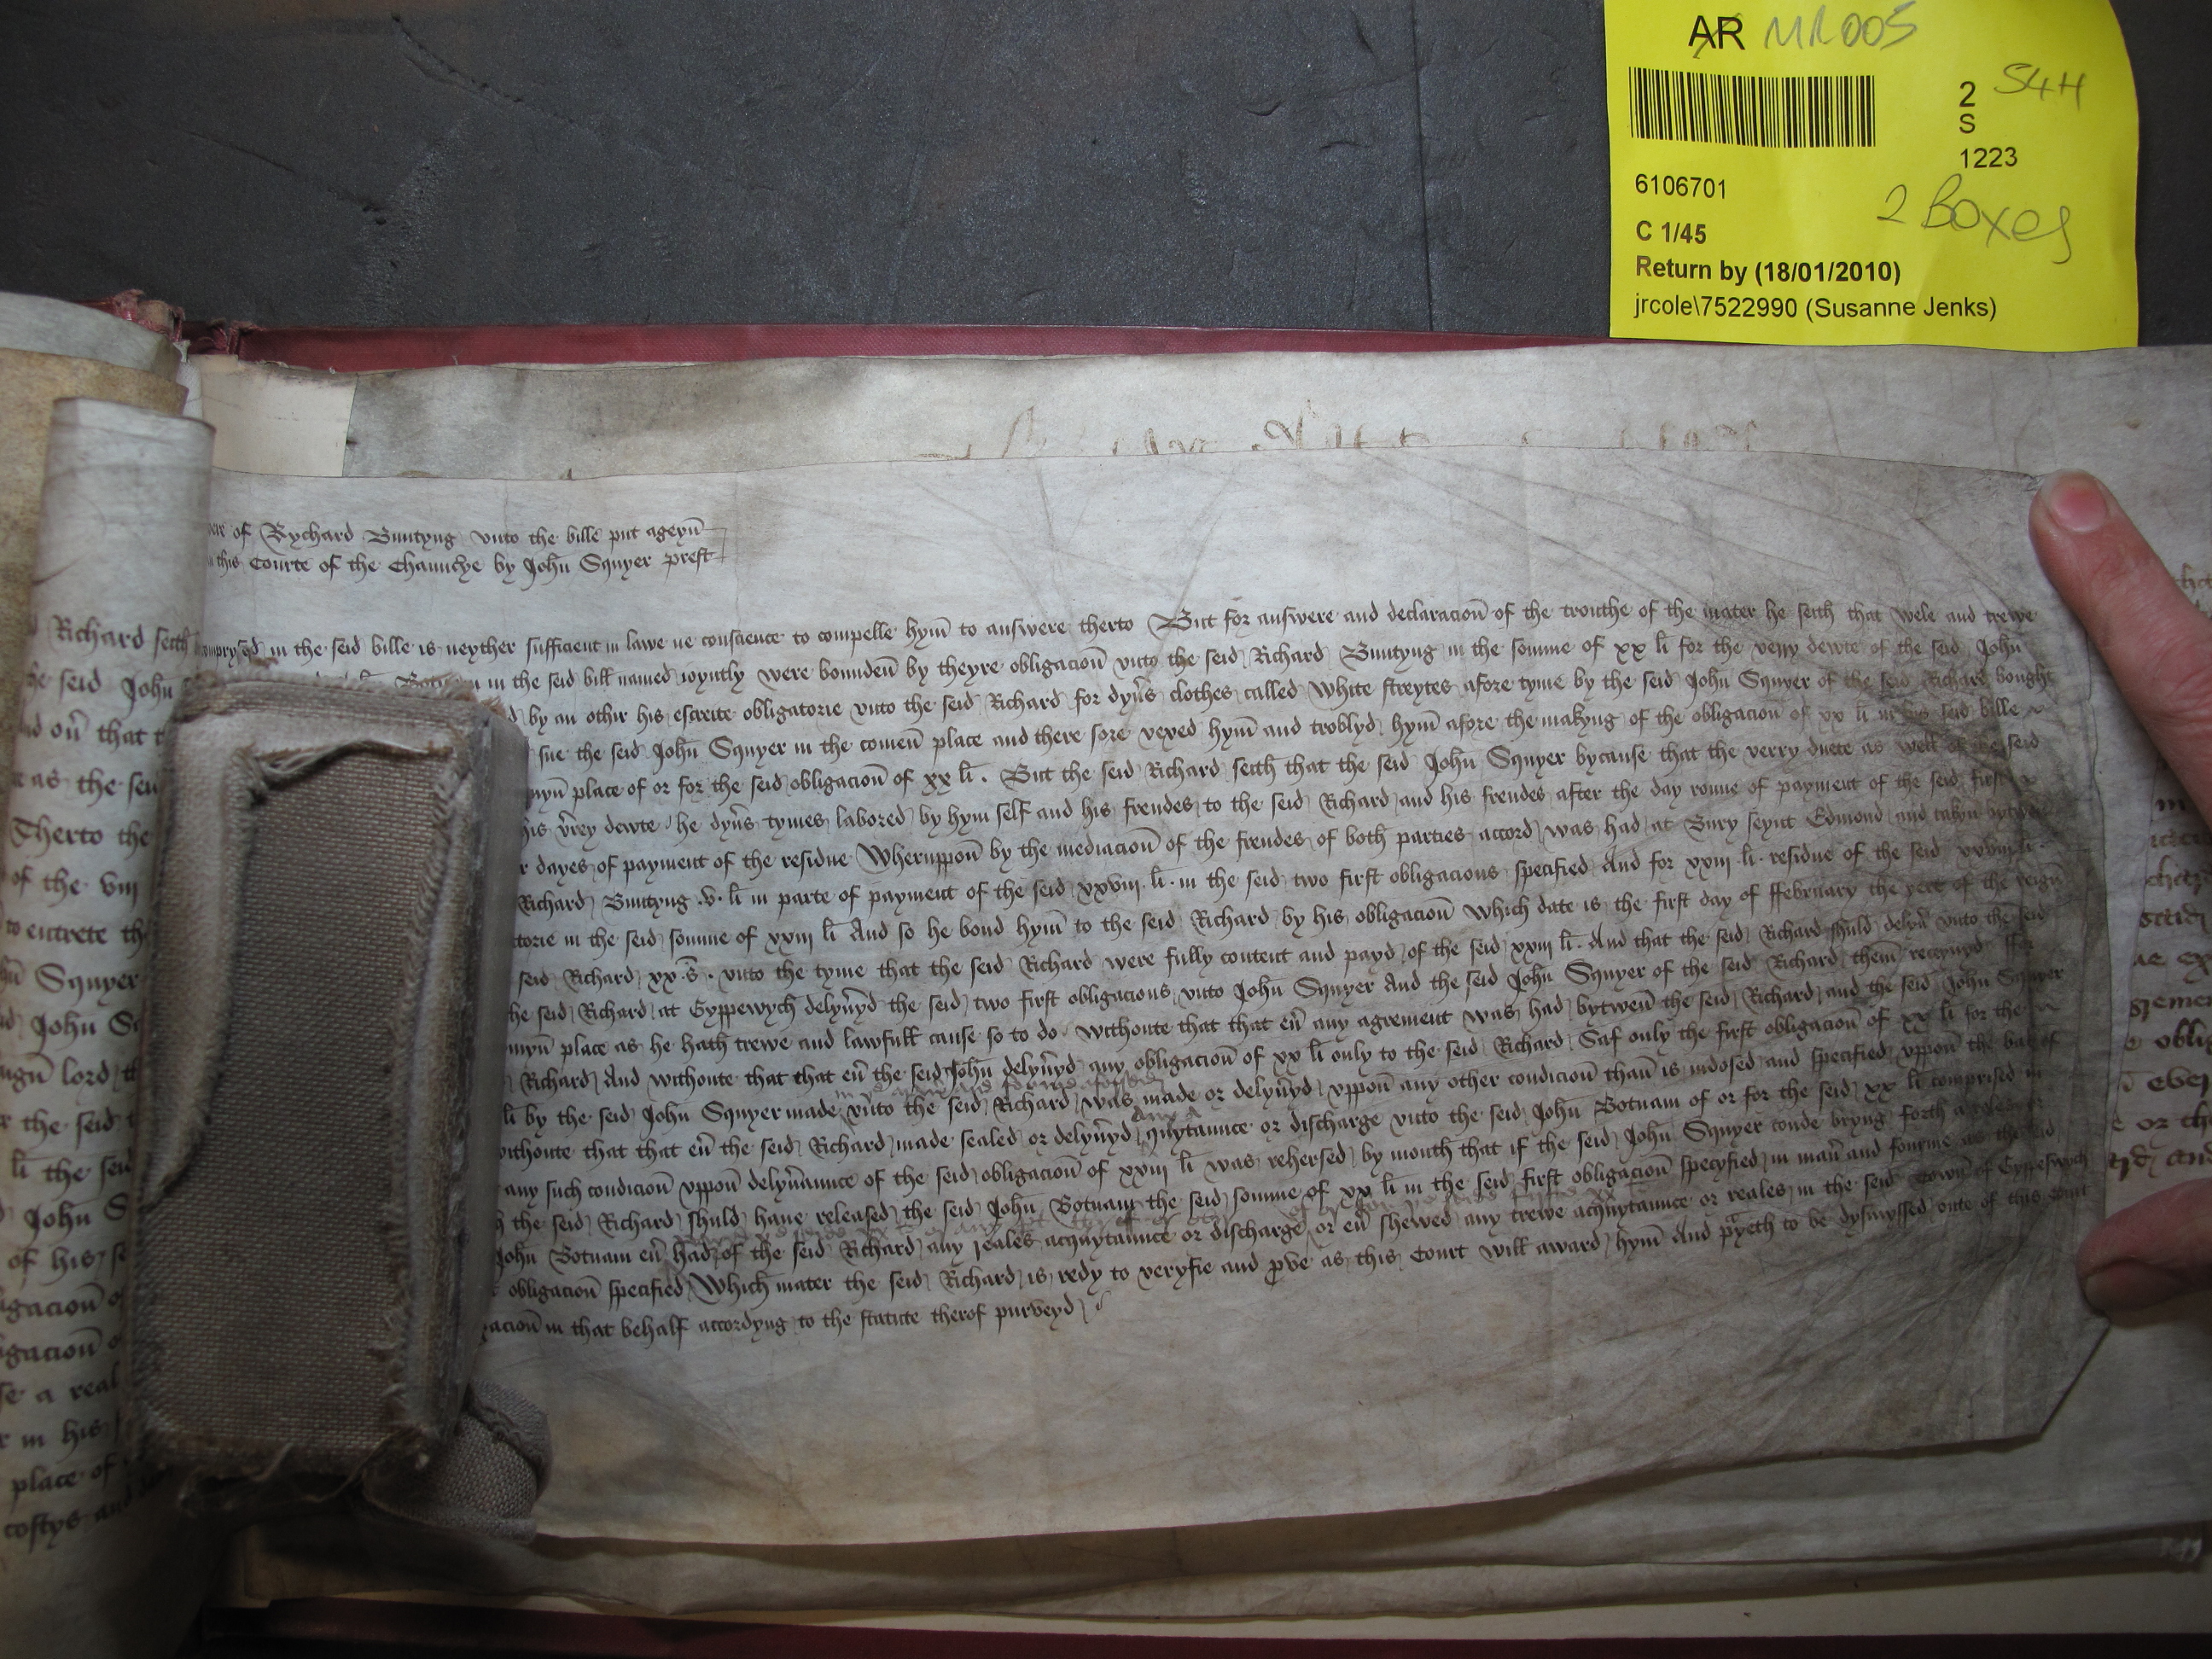 AR MR005
2 S4H
S
1223
6106701
2 Boxes
C 1/45
Return by (18/01/2010)
jrcole\7522990 (Susanne Jenks)
of Rychard Buntyng vnto the bille put ageyn̄
this Courte of the Chaunc̄ye by Joħn Squyer prest
in the seid bille is neyther sufficient in lawe ne conscience to compelle hym̄ to answere therto But for answere and declaracion̄ of the trouthe of the mater he seith that wele and trewe
in the seid bill named ioyntly were bounden̄ by theyre obligacion̄ vnto the seid Richard Buntyng in the somme of xx li for the verry dewte of the seid John
by an other his escreite obligatorie vnto the seid Richard for dyūs clothes called White streytes afore tyme by the seid John Squyer of the seid Richard bought
sue the seid Joħn Squyer in the comen̄ place and there sore vexed hym̄ and troblyd hym̄ afore the makyng of the obligacion̄ of xx li in his seid bille
place of or for the seid obligacion̄ of xx li. But the seid Richard seith that the seid John Squyer bycause that the verry duete as well of the seid
his v̄rey dewte he dyūs tymes labored by hym self and his frendes to the seid Richard and his frendes after the day ronne of payment of the seid first
dayes of payment of the residue Wheruppon̄ by the mediacion̄ of the frendes of both parties accord was had at Bury seynt Edmond and takyn bytwen
Richard Buntyng .v. li in parte of payment of the seid xxviii. li. in the seid two first obligacions specified And for xxiii. li. residue of the seid xxviii li.
in the seid somme of xxiii li And so he bond hym̄ to the seid Richard by his obligacion̄ Which date is the first day of ffebruary the yere of the reign
seid Richard xx .s̄. vnto the tyme that the seid Richard were fully content and payd of the seid xxiii li. And that the seid Richard shuld delyū vnto the seid
the seid Richard at Gyppewych delyūyd the seid two first obligacions vnto John Squyer And the seid John Squyer of the seid Richard them̄ receyuyd ffor
place as he hath trewe and lawfull cause so to do withoute that that eū any agrement was had bytwen̄ the seid Richard and the seid John Squyer
Richard And withoute that that eū the seid John delyūyd any obligacion̄ of xx li only to the seid Richard Saf only the first obligacion̄ of xx li for the
li by the seid John Squyer made vnto the seid Richard was made or delyūyd vppon̄ any other condicion̄ than̄ is indosed and specified vppon̄ the bak of
withoute that that eū the seid Richard made sealed or delyūyd any quytaunce or discharge vnto the seid John Botnam of or for the seid xx li comprised in
any such condicion̄ vppon̄ delyūaunce of the seid obligacion̄ of xxiii li was rehersed by mouth that if the seid John Squyer coude bryng forth
the seid Richard shuld haue released the seid John Botnam the seid somme of xx li in the seid first obligacion̄ specyfied in man̄ and fourme as the seid
John Botnam eū had of the seid Richard any reales acquytaunce or discharge or eū shewed any trewe acquytaunce or reales in the seid town̄ of Gyppeswych
obligacion̄ specified Which mater the seid Richard is redy to veryfie and pve as this Court will award hym̄ And prayeth to be dysmyssed oute of this court
in that behalf accordyng to the statute therof purveyd
Richard seith
seid John
that
as the seid
Therto the
of the viii
to entrete the
Squyer
John
lord
the seid
li the seid
John
of his
a real
in his
place of
costys and